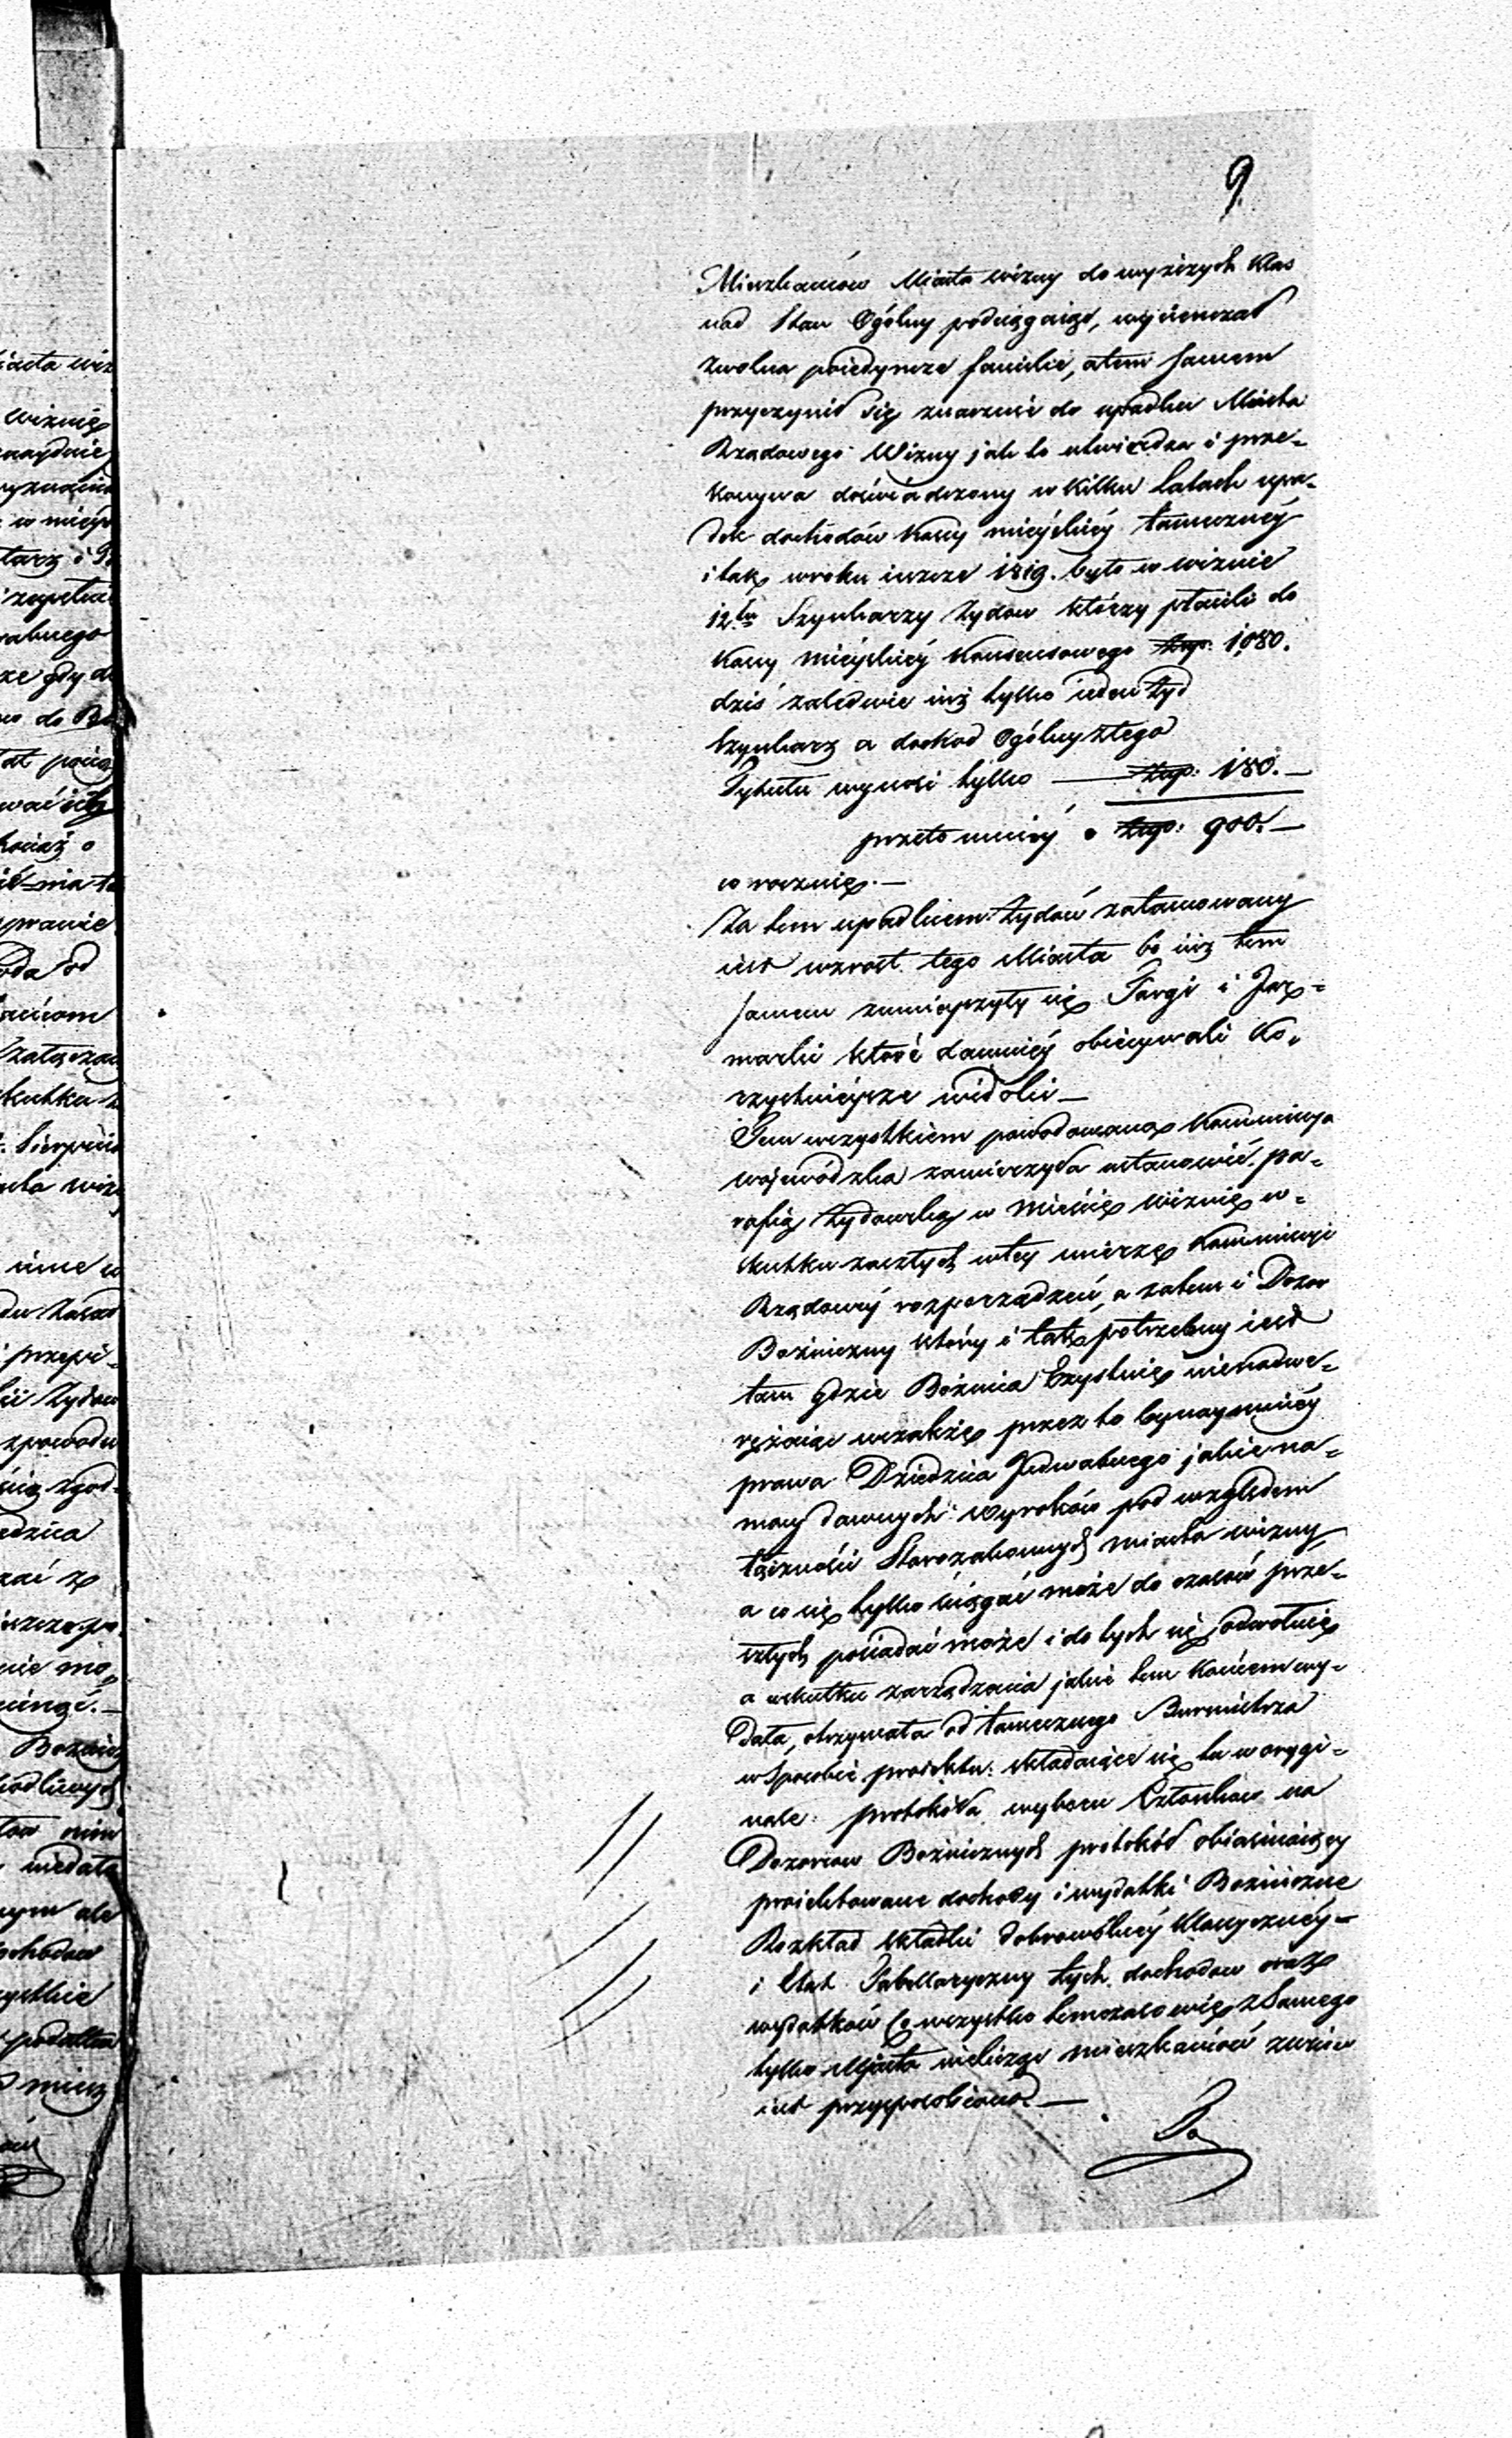 9.
Mieszkańców Miasta Wizny do wyższych klas
nad Stan Ogólny podciągaiąc, wycieńczać
zwolna poiedyncze familie, atem samem
przyczynić się znacznie do upadku Miasta
Rządowego Wizny jak to utwierdza i prze-
konywa doświadczony w kilku latach upa-
dek dochodów kassy mieyskiéy tameczнéy
i tak w roku ieszcze 1819. było w Wiznie
12tu Szynkarzy Żydow którzy płacili do
kassy mieyskiéy konsensowego złp. 1080.
dziś zaledwie iuż tylko ieden Żyd
szynkarz a dochod Ogólny z tego
Tytułu wynosi tylko — złp: 180. —
przeto mniéy o złp: 900. —
co rocznie. —
Za tem upadkiem Żydów zatamowany
iest wzrost tego Miasta bo iuż tem
samem zmnieyszyły się Targi i Jar-
marki które dawniéy obiecywali ko-
rzystnieysze widoki —
Tem wszystkiem powodowana Kommissya
Wojewódzka zamierzyła ustanowić pa-
rafią Żydowską w Mieście Wiznie w
skutku zaszłych w tey mierze Kommissyi
Rządowéy rozporządzeń, a zatem i Dozor
Bożniczny który i tak potrzebny iest
tam gdzie Bożnica Exystuie nienadwe-
rężaiąc wszakże przez to bynaymniéy
prawa Dziedzica Jedwabnego jakie na
mocy dawnych wyroków pod względem
łączności Starozakonnych miasta Wizny
a co się tylko ściągać może do czasów prze-
szłych posiadać może i do tych się odwołuie
a wskutku zarządzenia jakie tem końcem wy-
dała, otrzymała od tamecznego Burmistrza
w sposobie proiektu: składaiące się tu w orygi-
nale: protokóła wyboru Członkow na
Dozorcow Bożnicznych protokół obiaśniaiący
proiektowane dochody i wydatki Bożniczne
Rozkład składki dobrowólnéy klassycznéy —
i Etat Tabellaryczny tych dochodow oraz
wydatków Co wszystko tymczasowie z samego
tylko Miasta nielicząc mieszkańców
iest przysposobione. —